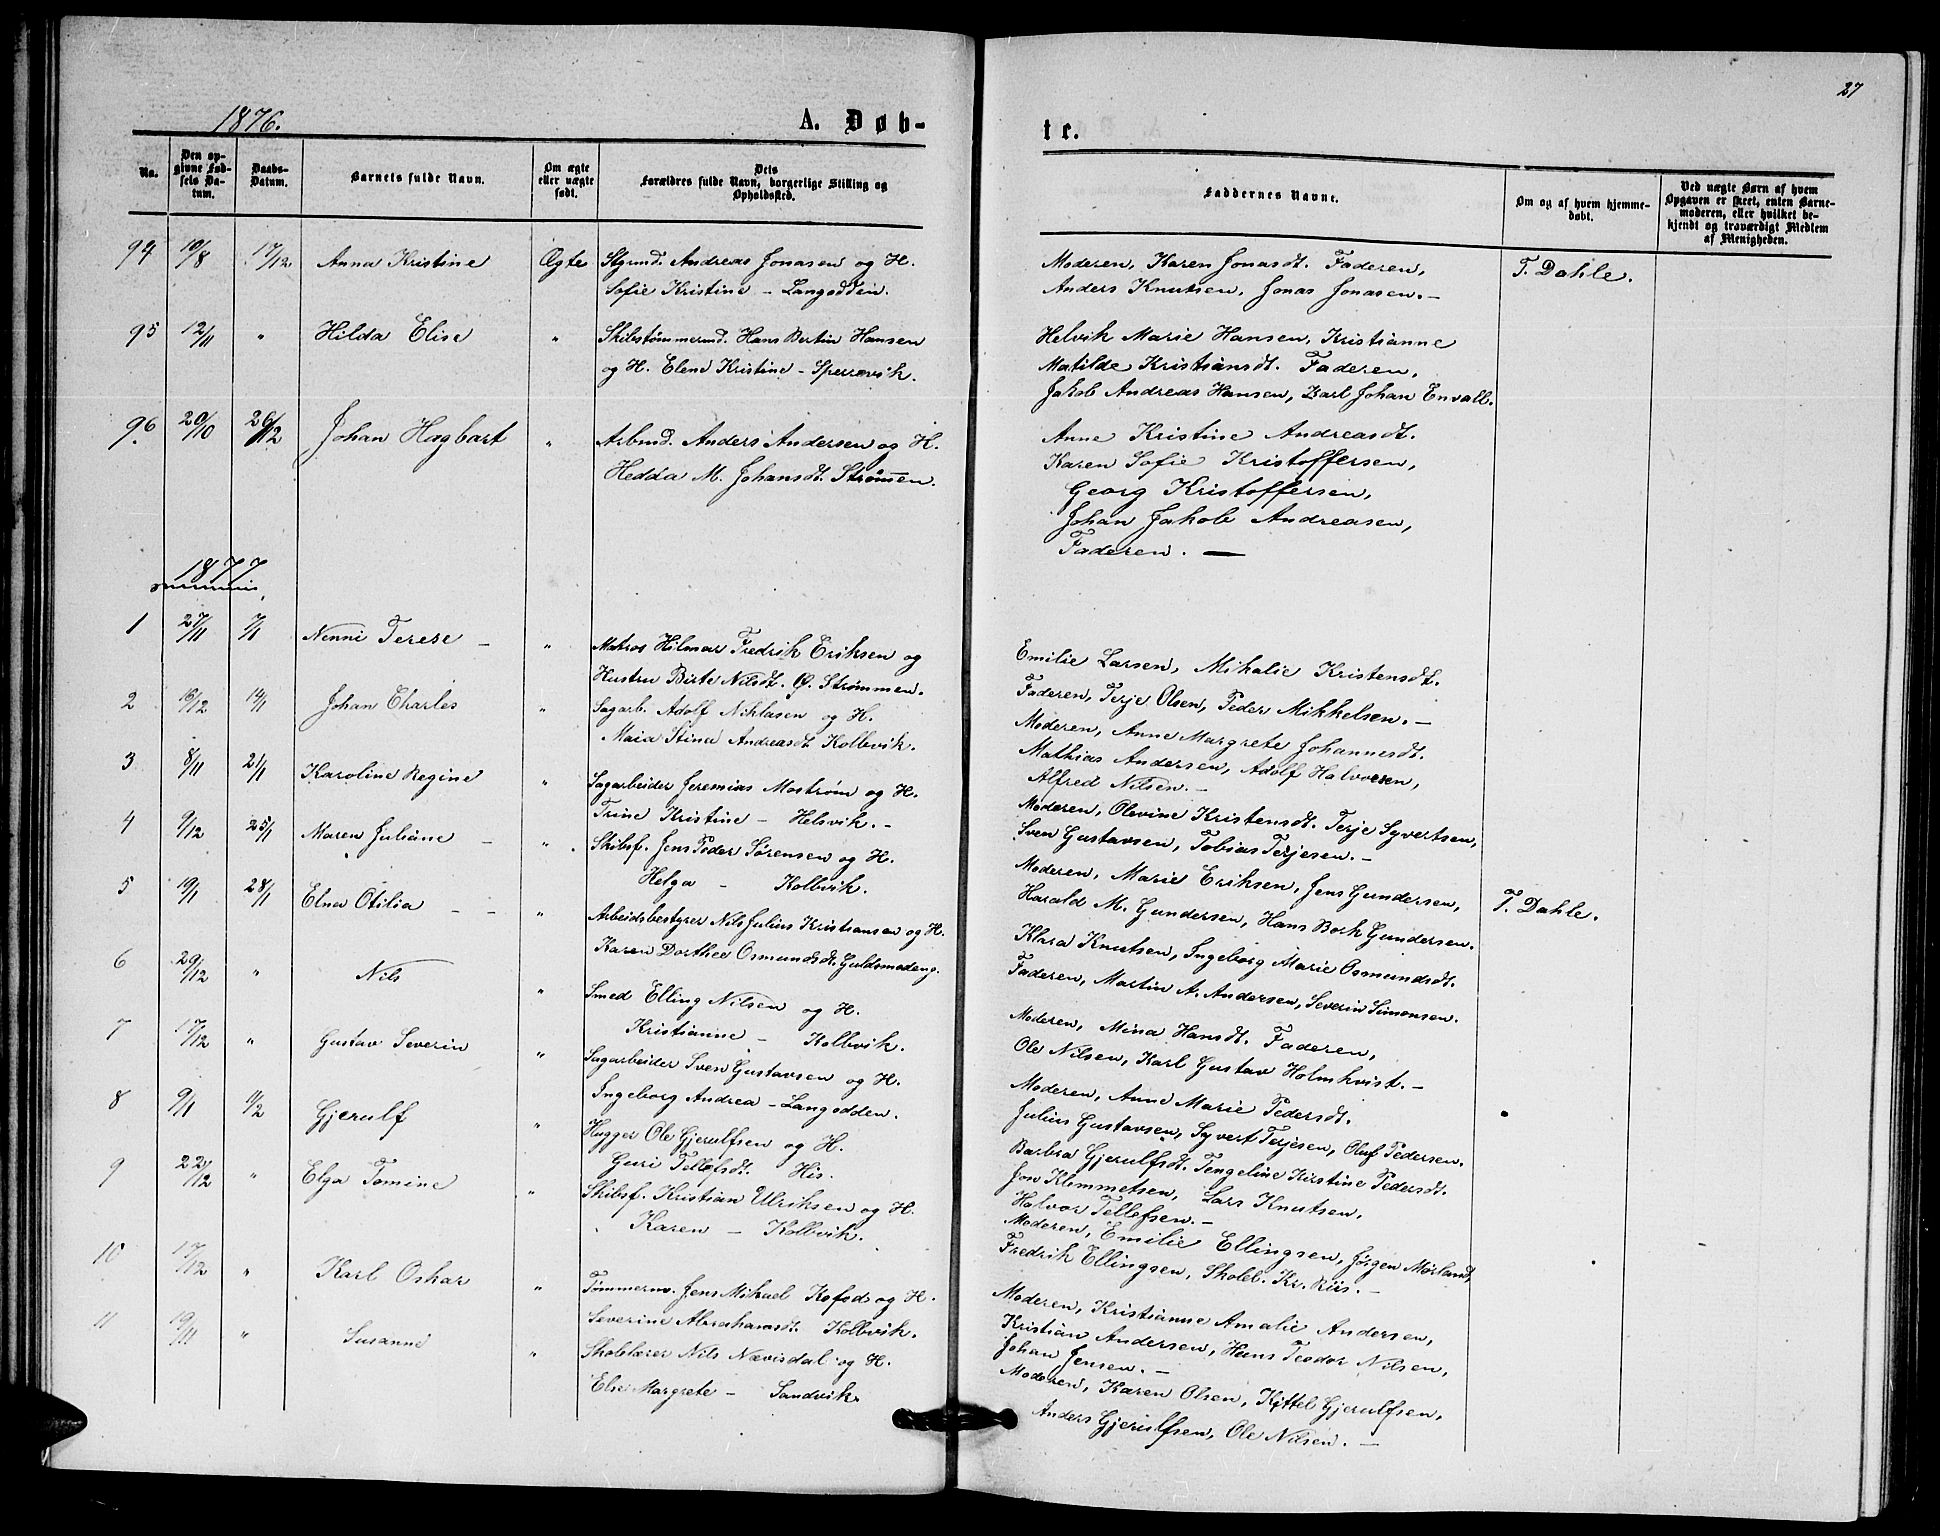 27
1876.
A. Døb-
te.
No.
Den op-
givne Fød-
sels Da-
tum.
Daabs-
Datum.
Barnets fulde Navn.
Om ægte
eller uægte
født.
Dets
Forældres fulde Navn, borgerlige Stilling og
Opholdssted.
Faddernes Navne.
Om og af hvem hjemme-
døbt.
Ved uægte Børn af hvem
Opgaven er skeet, enten Barne-
moderen, eller hvilket be-
kjendt og troværdigt Medlem
af Menigheden.
94 10/8 17/12 Anna Kristine Ægte Styrmd. Andreas Jonasen og H.
Sofie Kristine – Langodden.
Moderen, Karen Jonasdt. Faderen,
Anders Knutsen, Jonas Jonasen. –
T. Dahle.
95 12/11 " Hilda Elise " Skibstømmermd. Hans Bertin Hansen
og H. Elene Kristine – Sperrevik.
Helvik Marie Hansen, Kristianne
Matilde Kristiansdt. Faderen,
Jakob Andreas Hansen, Karl Johan Envall.
96. 20/10 26/12 Johan Hagbart " Arbmd. Anders Andersen og H.
Hedda M. Johansdt. Strømmen.
Anne Kristine Andreasdt.
Karen Sofie Kristoffersen,
Georg Kristoffersen,
Johan Jakob Andreasen,
Faderen. —
1877
1 27/11 7/1 Nenni Terese – " Matros Hilmar Fredrik Eriksen og
Hustru Birte Nilsdt. Ø. Strømmen.
Emilie Larsen, Mikalie Kristensdt.
Faderen, Terje Olsen, Peder Mikkelsen. –
2 16/12 14/1 Johan Charles " Sagarb. Adolf Niklasen og H.
Maia Stina Andreasdt. Kolbvik.
Moderen, Anne Margrete Johannesdt.
Mathias Andersen, Adolf Halvorsen,
Alfred Nilsen. –
3 8/11 21/1 Karoline Regine " Sagarbeider Jeremias Mostrøm og H.
Trine Kristine – Helsvik. –
Moderen, Olevine Kristensdt. Terje Syvertsen,
Sven Gustavsen, Tobias Terjesen. –
4 9/12 25/1 Maren Juliane – " Skibsf. Jens Peder Sørensen og H.
Helga – Kolbvik.
Moderen, Marie Eriksen, Jens Gundersen,
Harald M. Gundersen, Hans Bork Gundersen.
5 19/1 28/1 Elna Otilia – – " Arbeidsbestyrer Nils Julius Kristiansen og H.
Karen Dorthee Osmundsdt. Guldsmedeng.
Klara Knutsen, Ingeborg Marie Osmundsdt.
Faderen, Martin A. Andersen, Severin Simonsen.
T. Dahle.
6 29/12 " Nils " Smed Elling Nilsen og H.
Kristianne – Kolbvik.
Moderen, Mina Hansdt. Faderen,
Ole Nilsen, Karl Gustav Holmkvist. –
7 17/12 " Gustav Severin " Sagarbeider Sven Gustavsen og H.
Ingeborg Andrea – Langodden.
Moderen, Anne Marie Pedersdt.
Julius Gustavsen, Syvert Terjesen, Oluf Pedersen.
8 9/1 11/2 Gjerulf " Hugger Ole Gjerulfsen og H.
Guri Tellefsdt. His.
Barbra Gjerulfsdt. Tengeline Kirstine Pedersdt.
Jon Klemmetsen, Lars Knutsen,
Halvor Tellefsen. –
9 22/12 " Elga Tomine " Skibsf. Kristian Ulriksen og H.
Karen – Kolbvik.
Moderen, Emilie Ellingsen, Jørgen Mørland,
Fredrik Ellingsen, Skolel. Kr. Riis. –
10 17/12 " Karl Oskar " Tømmerm. Jens Mikael Kofod og H.
Severine Abrahamsdt. Kolbvik.
Moderen, Kristianne Amalie Andersen,
Kristian Andersen, Hans Teodor Nilsen,
Johan Jensen. –
11 19/11 " Susanne " Skolelærer Nils Nævisdal og H.
Else Margrete – Sandvik.
Moderen, Karen Olsen, Kittel Gjerulfsen,
Anders Gjerulfsen, Ole Nilsen. –